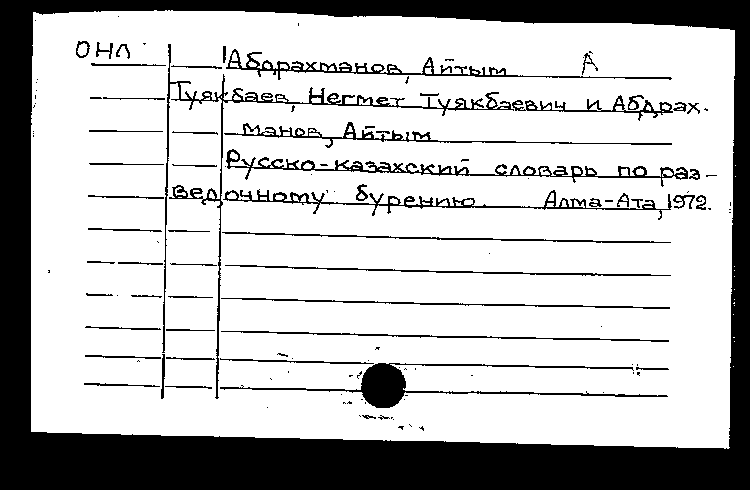 ОНЛ Абдрахманов, Айтым А
Туякбаев, Негмет Туякбаевич и Абдрах-
манов, Айтым
Русско-казахский словарь по раз-
ведочному бурению. Алма-Ата, 1972.